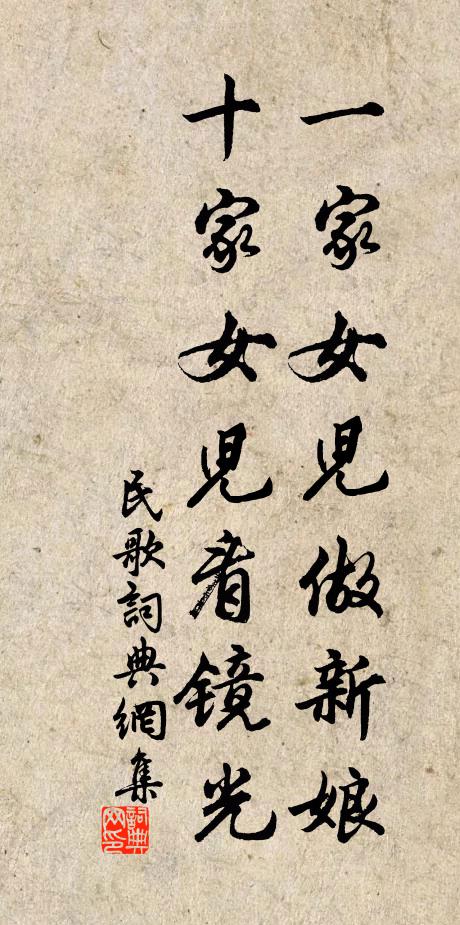 一家女兒做新娘
十家女兒看镜光
民歌詞典網集
詞典
网印